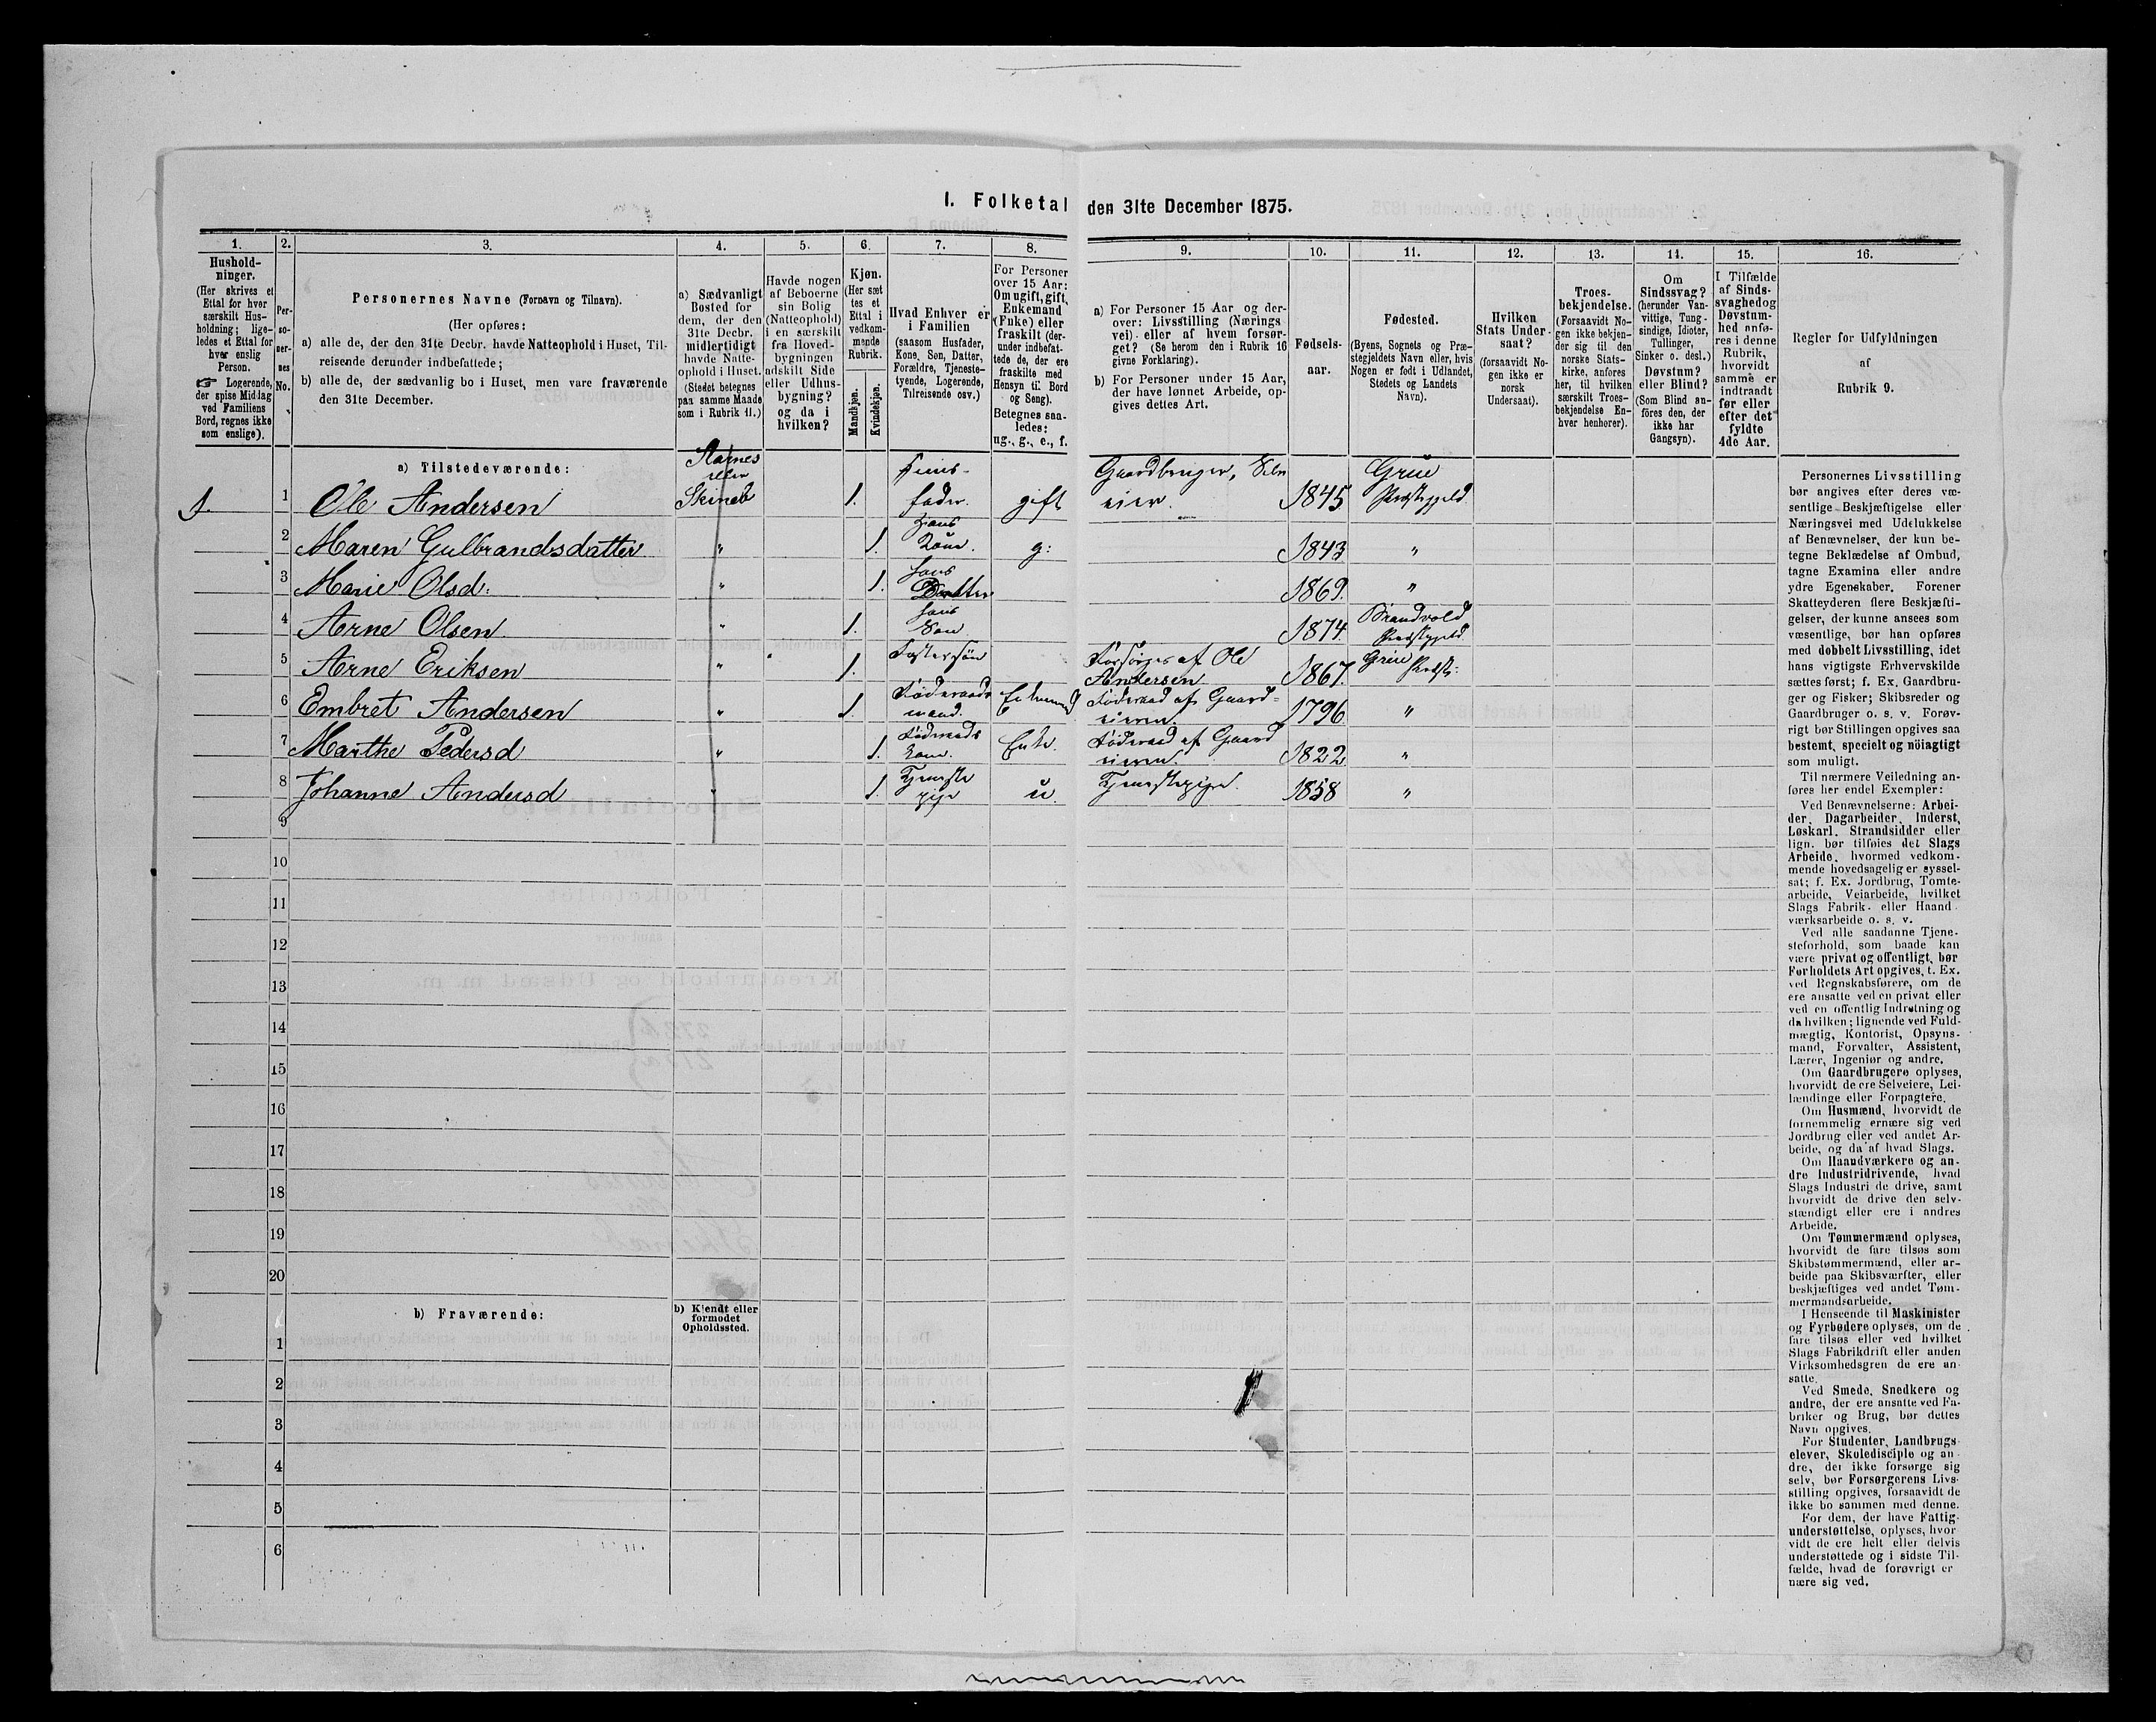 1. Folketal den 31te December 1875.
1. 2. 3. 4. 5. 6. 7. 8. 9. 10. 11. 12. 13. 14. 15. 16.
Hushold-
ninger.
(Her skrives et
Ettal for hver
særskilt Hus-
holdning; lige-
ledes et Ettal for
hver enslig
Person.
☞ Logerende,
der spise Middag
ved Familiens
Bord, regnes ikke
som enslige).
Per-
so-
ner-
nes
No.
Personernes Navne (Fornavn og Tilnavn).
(Her opføres:
a) alle de, der den 31te Decbr. havde Natteophold i Huset, Til-
reisende derunder indbefattede;
b) alle de, der sædvanlig bo i Huset, men vare fraværende
den 31te December.
a) Sædvanligt
Bosted for
dem, der den
31te Decbr.
midlertidigt
havde Natte-
ophold i Huset.
(Stedet betegnes
paa samme Maade
som i Rubrik 11.)
Havde nogen
af Beboerne
sin Bolig
(Natteophold)
i en særskilt
fra Hoved-
bygningen
adskilt Side
eller Udhus-
bygning?
og da i
hvilken?
Kjøn.
(Her sæt
tes et
Ettal i
vedkom-
mende
Rubrik.
Mandkjøn.
Kvindekjøn.
Hvad Enhver er
i Familien
(saasom Husfader,
Kone, Søn, Datter,
Forældre, Tjeneste-
tyende, Logerende,
Tilreisende osv.)
For Personer
over 15 Aar:
Om ugift, gift,
Enkemand
(Enke) eller
fraskilt (der-
under indbefat-
tede de, der ere
fraskilte med
Hensyn til Bord
og Seng).
Betegnes saa-
ledes:
ug., g., e., f.
a) For Personer 15 Aar og der-
over: Livsstilling (Nærings
vei) eller af hvem forsør-
get? (Se herom den i Rubrik 16
givne Forklaring).
b) For Personer under 15 Aar,
der have lønnet Arbeide, op-
gives dettes Art.
Fødsels-
aar.
Fødested.
(Byens, Sognets og Præ-
stegjeldets Navn eller, hvis
Nogen er født i Udlandet,
Stedets og Landets
Navn).
Hvilken
Stats Under-
saat?
(forsaavidt No-
gen ikke er
norsk
Undersaat).
Troes-
bekjendelse.
(Forsaavidt No-
gen ikke bekjen-
der sig til den
norske Stats-
kirke, anføres
her, til hvilken
særskilt Troes-
bekjendelse En-
hver henhører).
Om
Sindssvag?
(herunder Van-
vittige, Tung-
sindige, Idioter,
Tullinger,
Sinker o. desl.)
Døvstum?
eller Blind?
(Som Blind an-
føres den, der
ikke har
Gangsyn).
I Tilfælde
af Sinds-
svaghed og
Døvstum-
hed anfø-
res i denne
Rubrik,
hvorvidt
samme er
indtraadt
før eller
efter det
fyldte
4de Aar.
Regler for Udfyldningen
af
Rubrik 9.
a) Tilstedeværende:
1. 1 Ole Andersen Aarnes eller Skinab 1. Huus-fader. gift Gaardbruger, Selveier. 1845 Grue Præstegjeld
2 Maren Gulbrandsdatter " 1. Hans Kone. g: 1843 "
3 Marie Olsd: " 1. Hans Datter 1869. "
4 Arne Olsen " 1. Hans Søn 1874 Brandvold Præstegjeld
5 Arne Eriksen " 1. Fostersøn Forsørges af Ole Andersen 1867. Grue Præst:
6 Embret Andersen " 1. Føderaads mand. Enkemand Føderaad af Gaard-eieren. 1796 "
7 Marthe Pedersd " 1. Føderaads Kone. Enke. Føderaad af Gaard eieren. 1822 "
8 Johanne Andersd " 1. Tjeneste pige u. Tjenestepige. 1858 "
9
10
11
12
13
14
15
16
17
18
19
20
b) Fraværende:
b) Kjendt eller
formodet
Opholdssted.
1
2
3
4
5
6
Personernes Livsstilling
bør angives efter deres væ-
sentlige Beskjæftigelse eller
Næringsvei med Udelukkelse
af Benævnelser, der kun be-
tegne Beklædelse af Ombud,
tagne Examina eller andre
ydre Egenskaber. Forener
Skatteyderen flere Beskjæfti-
gelser, der kunne ansees som
væsentlige, bør han opføres
med dobbelt Livsstilling, idet
hans vigtigste Erhvervskilde
sættes først; f. Ex. Gaardbru-
ger og Fisker; Skibsreder og
Gaardbruger o. s. v. Forøv-
rigt bør Stillingen opgives saa
bestemt, specielt og nöiagtigt
som muligt.
Til nærmere Veiledning an-
føres her endel Exempler:
Ved Benævnelserne: Arbei-
der, Dagarbeider, Inderst,
Løskarl, Strandsidder eller
lign. bør tilføies det Slags
Arbeide, hvormed vedkom-
mende hovedsagelig er syssel-
sat; f. Ex. Jordbrug, Tomte-
arbeide, Veiarbeide, hvilket
Slags Fabrik- eller Haand-
værksarbeide o. s. v.
Ved alle saadanne Tjene-
steforhold, som baade kan
være privat og offentligt, bør
Forholdets Art opgives, t. Ex.
ved Regnskabsførere, om de
ere ansatte ved en privat eller
ved en offentlig Indretning og
da hvilken; lignende ved Fuld-
mægtig, Kontorist, Opsyns-
mand, Forvalter, Assistent,
Lærer, Ingeniør og andre.
Om Gaardbrugere oplyses,
hvorvidt de ere Selveiere, Lei-
lændinge eller Forpagtere.
Om Husmænd, hvorvidt de
fornemmelig ernære sig ved
Jordbrug eller ved andet Ar-
beide, og da af hvad Slags.
Om Haandværkere og an-
dre Industridrivende, hvad
Slags Industri de drive, samt
hvorvidt de drive den selv-
stændigt eller ere i andres
Arbeide.
Om Tømmermænd oplyses,
hvorvidt de fare tilsøs som
Skibstømmermænd, eller ar-
beide paa Skibsværfter, eller
beskjæftiges ved andet Tøm-
mermandsarbeide.
I Henseende til Maskinister
og Fyrbødere oplyses, om de
fare tilsøs eller ved hvilket
Slags Fabrikdrift eller anden
Virksomhedsgren de ere an-
satte.
Ved Smede, Snedkere og
andre, der ere ansatte ved Fa-
briker og Brug, bør dettes
Navn opgives.
For Studenter, Landbrugs-
elever, Skoledisciple og an-
dre, der ikke forsørge sig
selv, bør Forsørgerens Livs-
stilling opgives, forsaavidt de
ikke bo sammen med denne.
For dem, der have Fattig-
understøttelse, oplyses, hvor-
vidt de ere helt eller delvis
understøttede og i sidste Til-
fælde, hvad de forøvrigt er
nære sig ved.